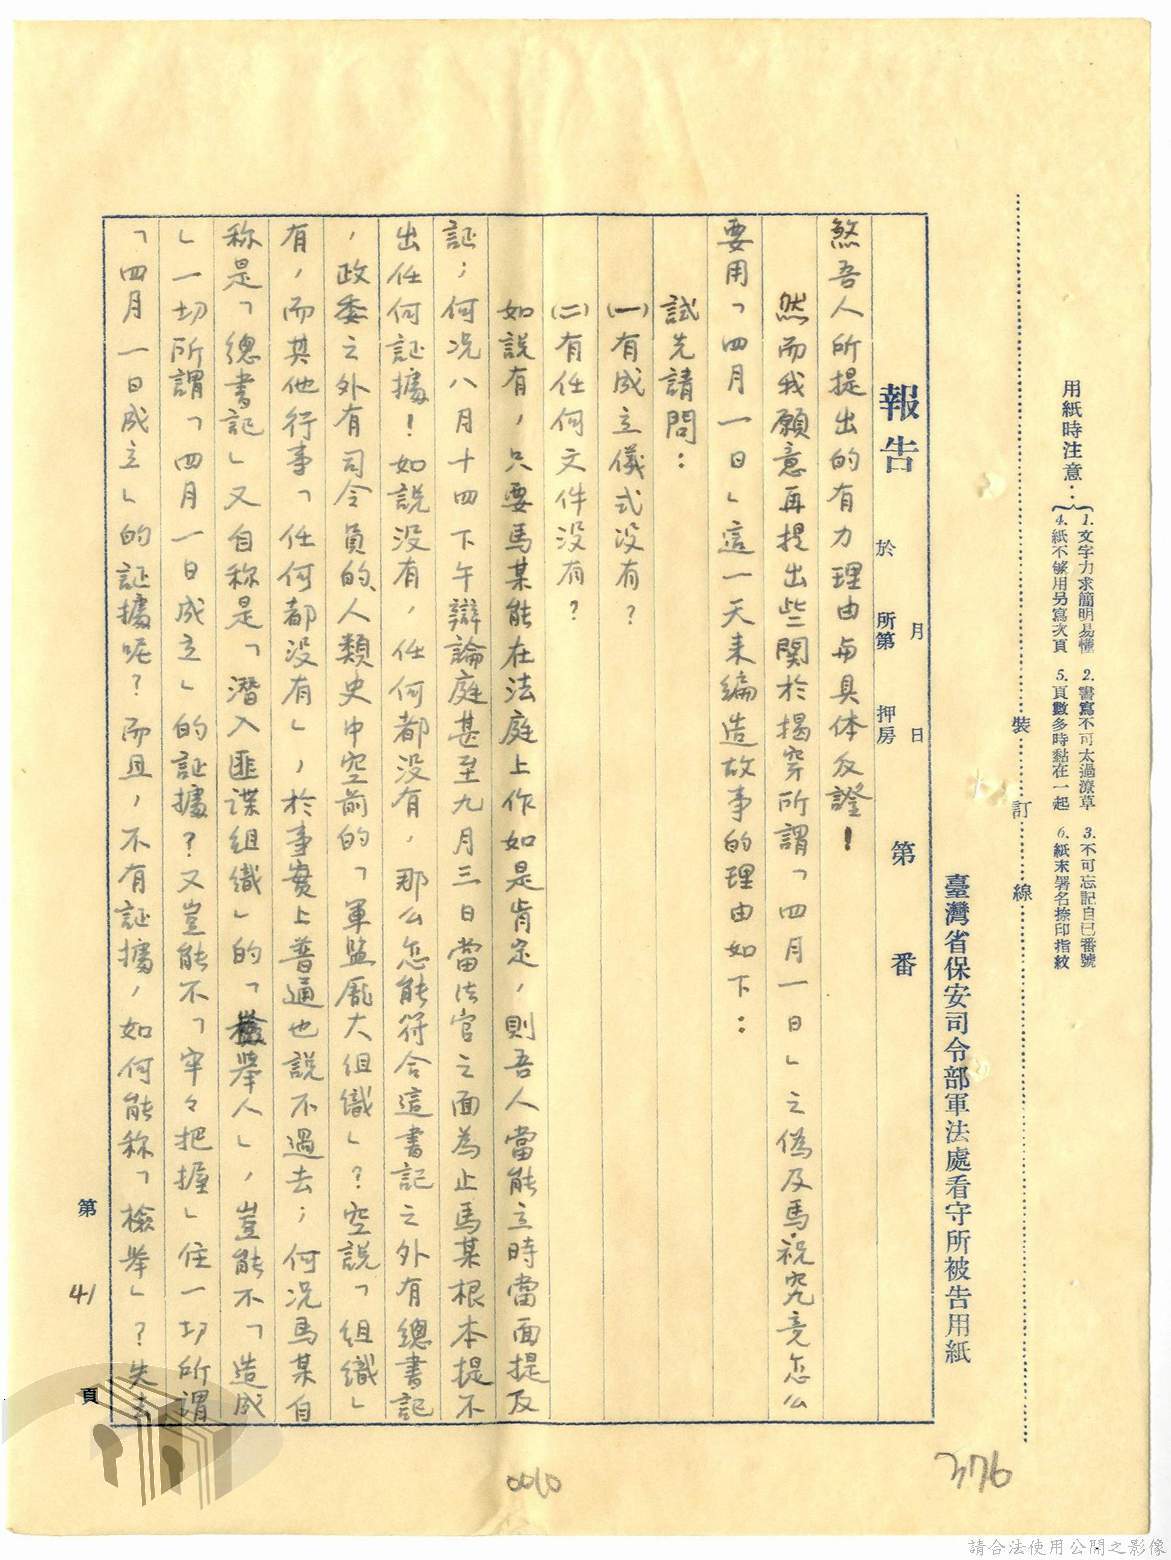 用紙時注意：
1. 文字力求簡明易懂 2. 書寫不可太過潦草 3. 不可忘記自己番號
4. 紙不够用另寫次頁 5. 頁數多時黏在一起 6. 紙末署名捺印指紋
裝 訂 線
臺灣省保安司令部軍法處看守所被告用紙
報告 於 月 日 所第 押房 第 番
煞吾人所提出的有力理由與具体反證！
然而我願意再提出些關於揭穿所謂「四月一日」之偽及馬·祝究竟怎么
要用「四月一日」這一天来編造故事的理由如下：
試先請問：
(一)有成立儀式没有？
(二)有任何文件没有？
如説有，只要馬某能在法庭上作如是肯定，則吾人當能立時當面提反
証；何况八月十四下午辯論庭甚至九月三日當法官之面為止馬某根本提不
出任何証據！如説没有，任何都没有，那么怎能符合這書記之外有總書記
，政委之外有司令員的、人類史中空前的「軍監龐大組織」？空説「組織」
有，而其他行事「任何都没有」，於事實上普通也説不過去；何况馬某自
称是「總書記」又自称是「潛入匪諜組織」的「檢舉人」，豈能不「造成
」一切所謂「四月一日成立」的証據？又豈能不「牢々把握」住一切所謂
「四月一日成立」的証據呢？而且，不有証據，如何能称「檢舉」？失去
第 41 頁
0010
376
請合法使用公開之影像